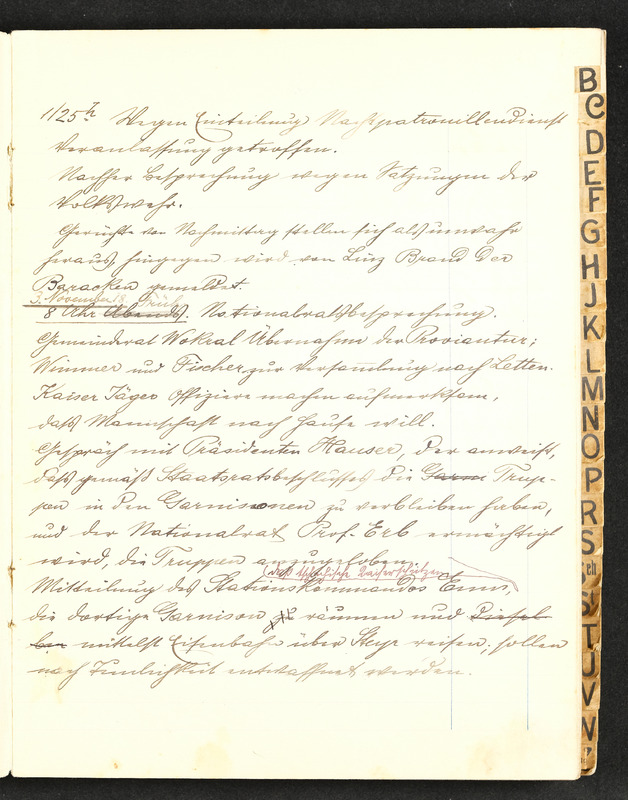 1/2 5h Wegen Einteilung Nachtpatrouillendienst
Veranlassung getroffen.
Nachher Besprechung wegen Satzungen der
Volkswehr.
Gerüchte von Nachmittag stellen sich als unwahr
heraus, hingegen wird von Linz Brand der
Baracken gemeldet.
3. November 18. Früh
8 Uhr Abends. Nationalratsbesprechung.
Gemeinderat Wokral Übernahme der Proviantur;
Wimmer und Fischer zur Versammlung nach Letten.
Kaiser Jäger Offiziere machen aufmerksam,
daß Mannschaft nach Hause will.
Gespräch mit Präsidenten Hauser, der anweist,
daß gemäß Staatsratsbeschlusses die Garni Trup-
pen in den Garnisonen zu verbleiben haben,
und der Nationalrat Prof. Erb ermächtigt
wird, die Truppen anzugeloben.
(daß tschechische
Mitteilung des Stationskommandos Enns,
die dortige Garnison räumen und Diesel
ben mittelst Eisenbahn über Steyr reisen; sollen
nach Tunlichkeit entwaffnet werden.
B
C
D
E
F
G
H
J
K
L
M
N
O
P
R
S
Sch
St
T
U
V
W